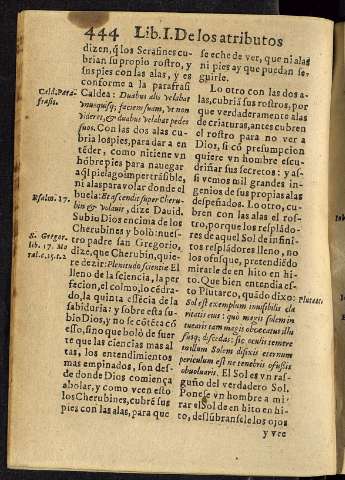 444 Lib. I. De los atributos
dizen, q̃ los Serafines cu-
brian su propio rostro, y
sus pies con las alas, y es
conforme a la parafrasi
Cald. Para-
frasis.
Caldea: Duabus alis velabat
vnusquisq; faciem suam, vt non
videret, & duabus velabat pedes
suos. Con las dos alas cu-
brian los pies, para dar a en-
tẽder, como ni tiene vn
hõbre pies para nauegar
aql pielago impertrãsible,
ni alas para volar donde el
Psalm. 17.
buela: Et ascendit super Cheru-
bin & volauit, dize Dauid.
Subio Dios encima de los
Cherubines y boló: nues-
S. Gregor.
lib. 17. Mo
ral. c. 15. t. 2
tro padre san Gregorio,
dize, que Cherubin, quie-
re dezir: Plenitudo scientiæ El
lleno de la sciencia, la per
fecion, el colmo, lo cẽdra-
do, la quinta essẽcia de la
sabiduria: y sobre esta su-
bio Dios, y no se cõtẽta cõ
esso, sino que boló de suer
te que las ciencias mas al
tas, los entendimientos
mas empinados, son des-
de donde Dios comiença
a bolar, y como veen esto
los Cherubines, cubrẽ sus
pies con las alas, para que
se eche de ver, que ni alas
ni pies ay que puedan se-
guirle.
Lo otro con las dos a-
las, cubriã sus rostros, por
que verdaderamente alas
de criaturas, antes cubren
el rostro para no ver a
Dios, si cõ presumpcion
quiere vn hombre escu-
driñar sus secretos: y assi
vemos mil grandes in-
genios de sus propias alas
despeñados. Lo otro, cu-
bren con las alas el ros-
tro, porque los resplãdo-
res de aquel Sol de infini-
tos respladores lleno, no
los ofusque, pretendiẽdo
mirarle de en hito en hi-
to. Que bien entendia es-
to Plutarco, quãdo dixo:
Plutarc.
Sol est exemplum inuisibilis cla
ritatis eius: quò magis solem in-
tuearis tam magis obcæcatus illu
fusq; discedas: sic oculis temere
in illum Solem difixis eternum
periculum est ne tenebris ofusus
obuoluaris. El Sol es vn ras-
guño del verdadero Sol.
Ponese vn hombre a mi-
rar el Sol de en hito en hi-
to, deslũbranse le los ojos
y vee